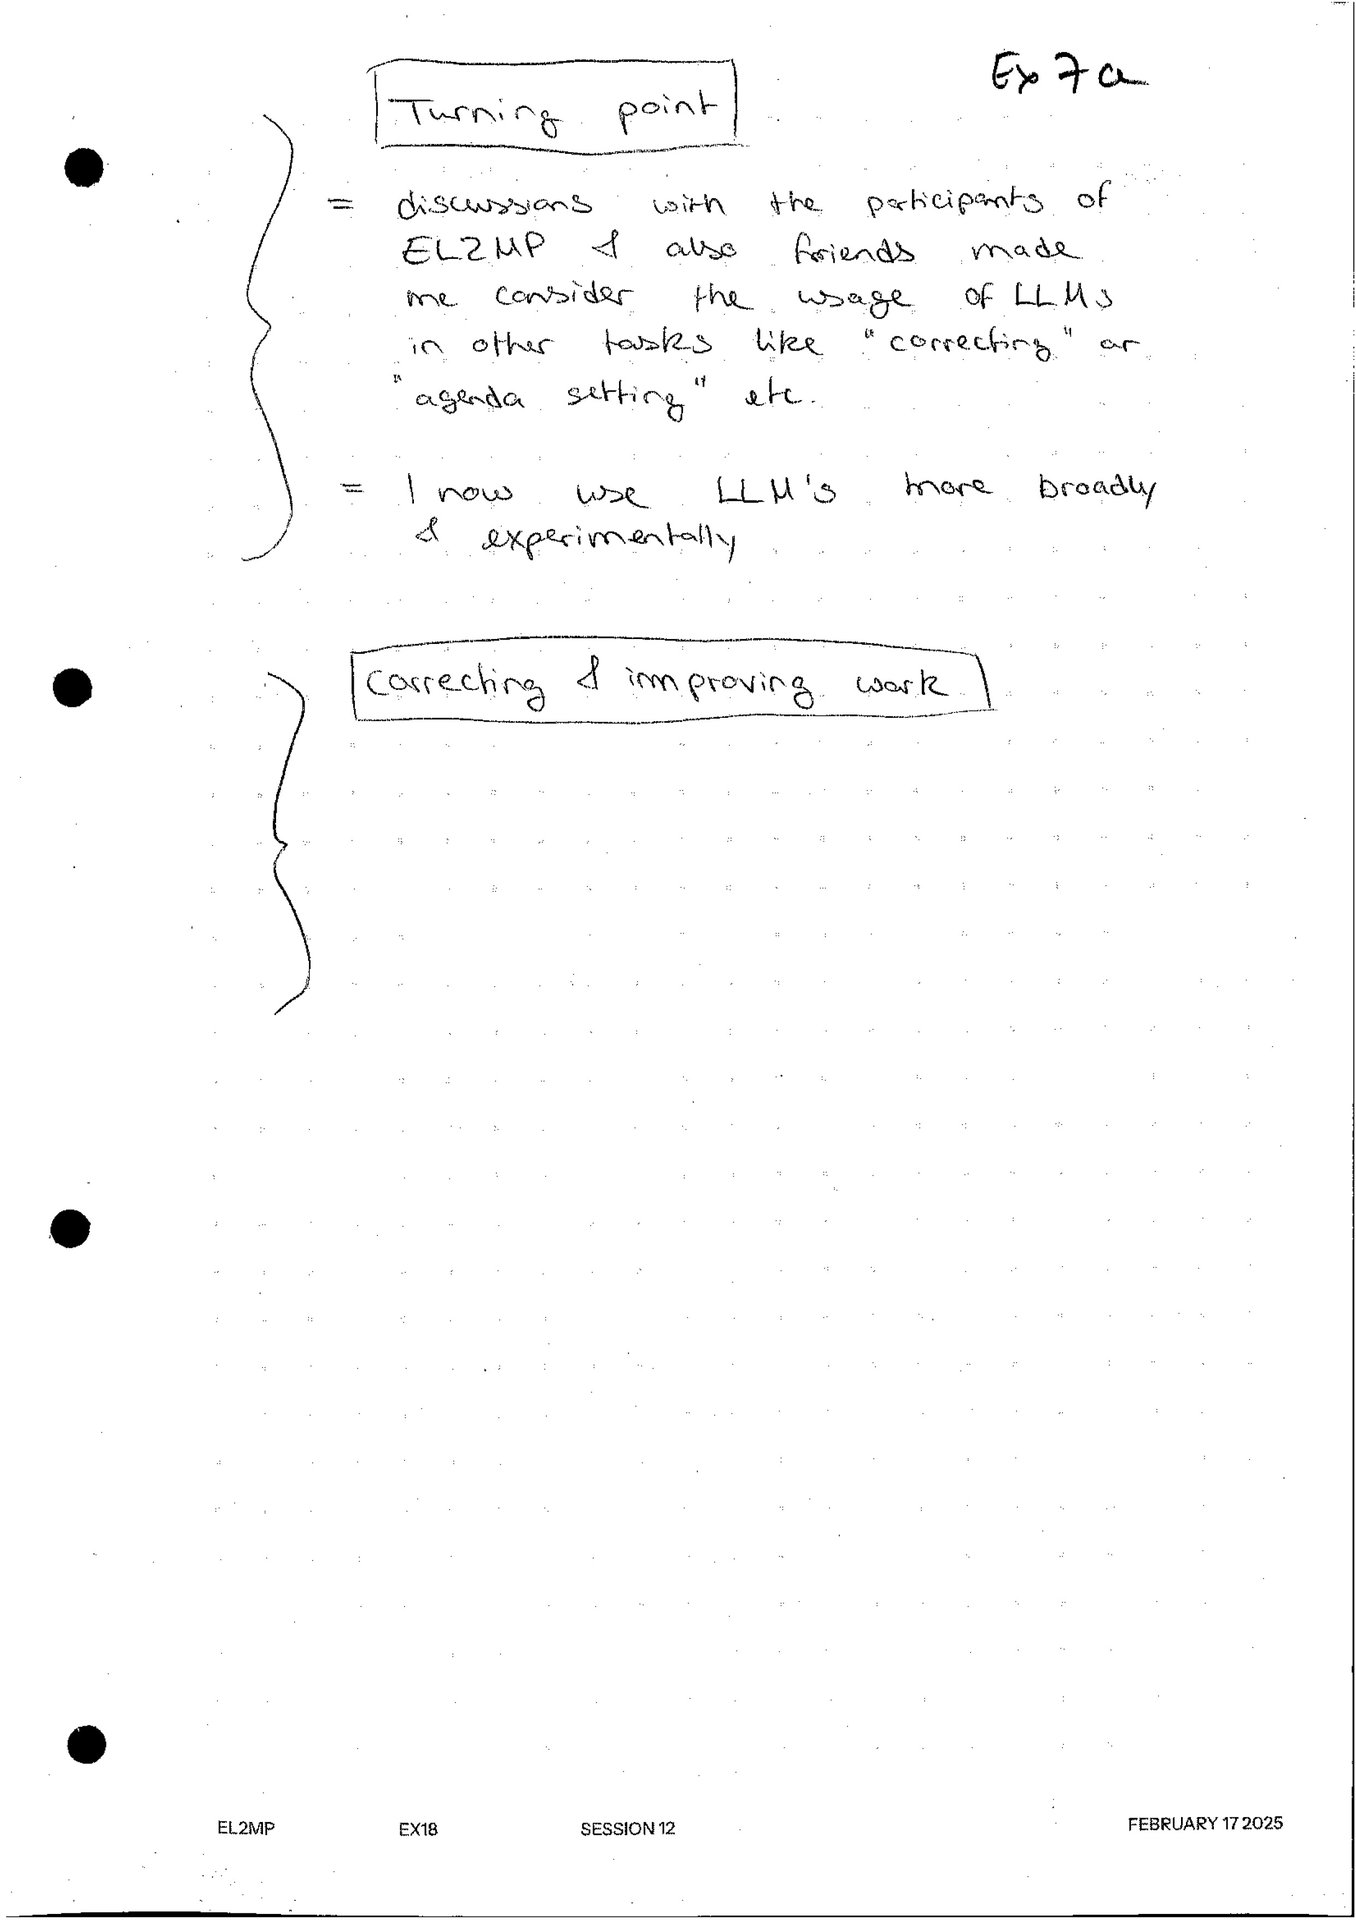 Ex 7a
Turning point
= discussions with the participants of
EL2MP & also friends made
me consider the usage of LLMs
in other tasks like "correcting" or
"agenda setting" etc.
= I now use LLM's more broadly
& experimentally
Correcting & improving work
EL2MP EX18 SESSION 12 FEBRUARY 17 2025